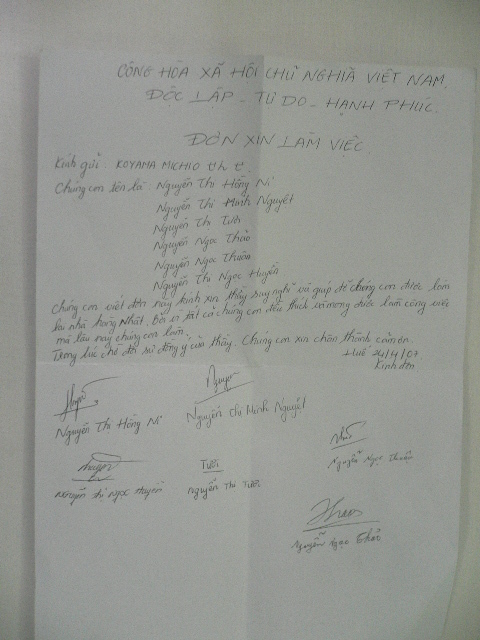 CÔNG HÒA XÃ HÔI CHU NGHIÃ VIÊT NAM,
ĐÔC LÂP - TU DO - HANH PHUC
ĐƠN XIN LÀM VIÊC
Kính gửi: KOYAMA MICHIO せんせ
Chúng con tên là: Nguyên Thi Hông Ni
Nguyên Thi Minh Nguyêt
Nguyên Thi Tươi
Nguyên Ngoc Thảo
Nguyên Ngoc Thuân
Nguyên Thi Ngoc Huyên
Chúng con viêt đơn này kính xin thây suy nghĩ và giup đỡ chúng con được làm
lai nhà hàng Nhât. Bởi vì tât cả chúng con đêu thích và mong được làm công viêc
mà lâu nay chúng con làm.
Trong lúc chờ đơi sự đông ý của thây. Chúng con xin chân thành cảm ơn.
Huê 24/4/07
Kính đơn
Nguyên Thi Hông Ni
Nguyên Thi Minh Nguyêt
Nguyên Ngoc Thuân
Nguyên thi Ngoc Huyên
Tươi
Nguyên Thi Tươi
Nguyên Ngoc Thảo